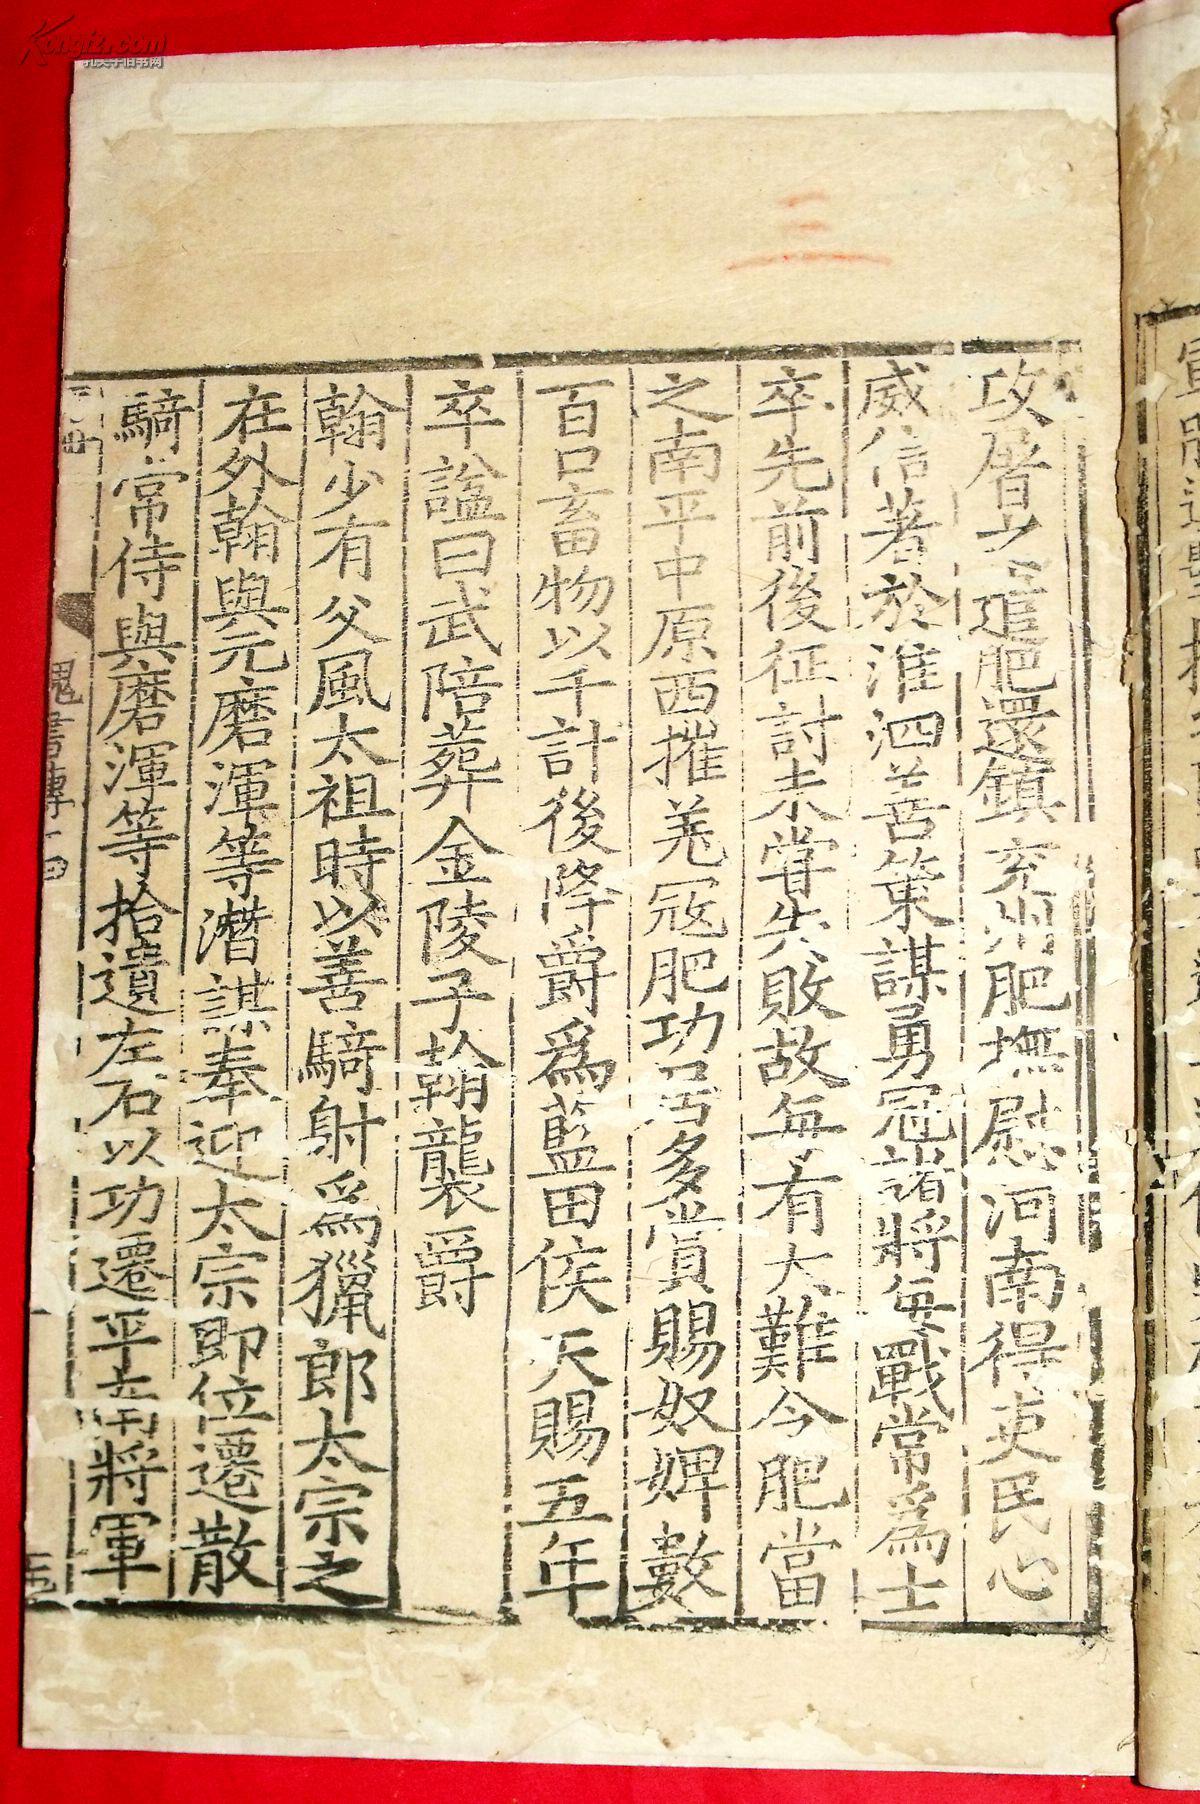 Kongfz.com
孔夫子旧书网
三
攻屠之遣肥還鎮兖州肥撫慰河南得吏民心
威信著於淮泗善策謀勇冠諸將每戰常爲士
卒先前後征討未嘗失敗故每有大難令肥當
之南平中原西摧羗寇肥功居多賞賜奴婢數
百口畜物以千計後降爵爲藍田侯天賜五年
卒謚曰武陪葬金陵子翰襲爵
翰少有父風太祖時以善騎射爲獵郎太宗之
在外翰與元磨渾等潛謀奉迎太宗即位遷散
騎常侍與磨渾等拾遺左右以功遷平南將軍
魏書傳十四